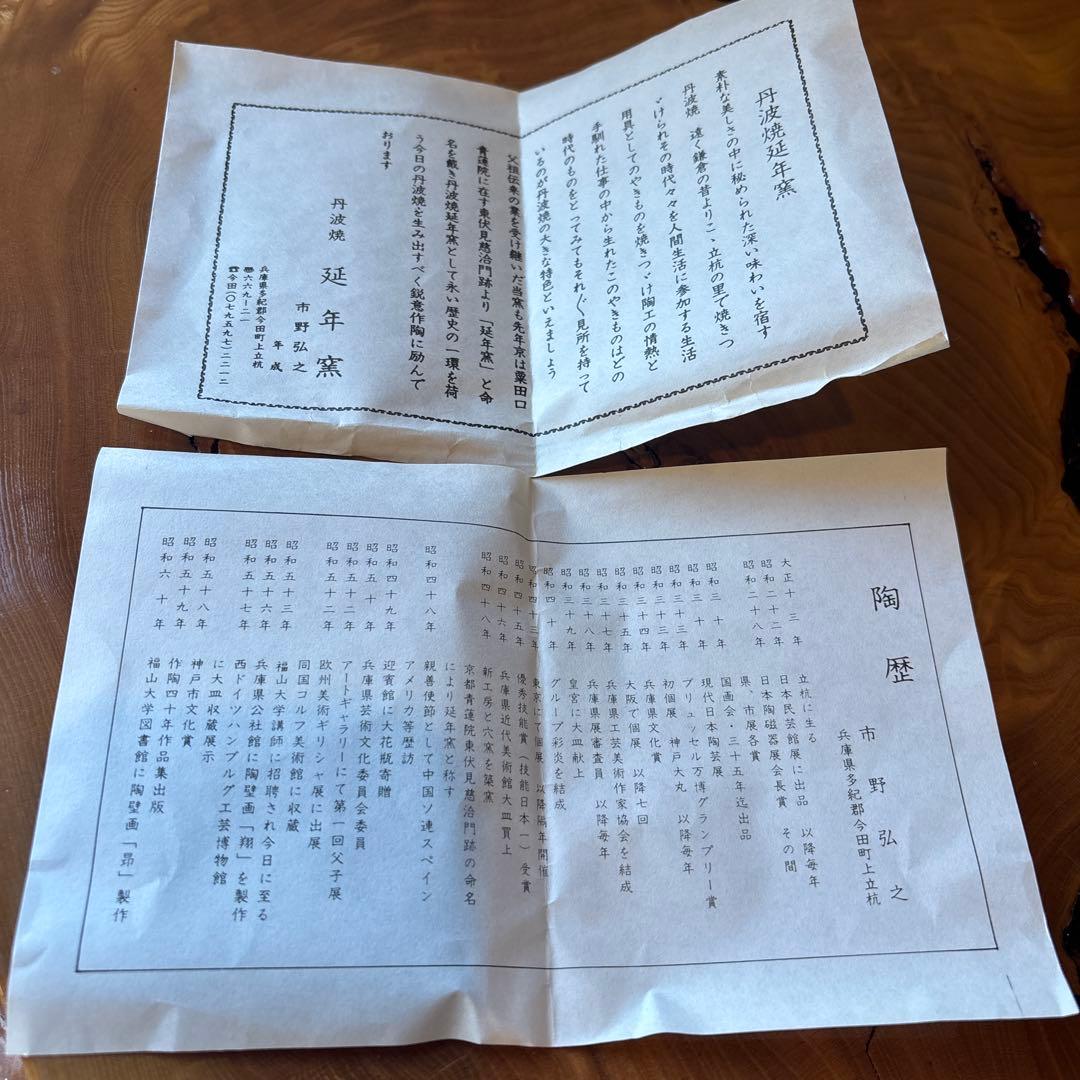 丹波焼延年窯
素朴な美しさの中に秘められた深い味わいを宿す
丹波焼 遠く鎌倉の昔よりこゝ立杭の里で焼きつ
ゞけられその時代々々を人間生活に参加する生活
用具としてのやきものを焼きつゞけ陶工の情熱と
手馴れた仕事の中から生れたこのやきものはどの
時代のものをとってみてもそれ〴〵見所を持って
いるのが丹波焼の大きな特色といえましょう
父祖伝来の業を受け継いだ当窯も先年京は粟田口
青蓮院に在す東伏見慈洽門跡より「延年窯」と命
名を戴き丹波焼延年窯として永い歴史の一環を荷
う今日の丹波焼を生み出すべく鋭意作陶に励んで
おります
丹波焼 延年窯
市野弘之
年成
兵庫県多紀郡今田町上立杭
〠六六九ー二一
☎今田(〇七九五九七)二二一二
陶歴 市野弘之
兵庫県多紀郡今田町上立杭
大正十三年 立杭に生る
昭和二十二年 日本民芸館展に出品 以降毎年
昭和二十八年 日本陶磁器展会長賞 その間
県、市展各賞
昭和三十年 国画会・三十五年迄出品
昭和三十年 現代日本陶芸展
昭和三十三年 ブリュッセル万博グランプリー賞
昭和三十三年 初個展 神戸大丸 以降毎年
昭和三十四年 兵庫県文化賞
昭和三十五年 大阪で個展 以降七回
昭和三十七年 兵庫県工芸美術作家協会を結成
昭和三十八年 兵庫県展審査員 以降毎年
昭和三十九年 皇宮に大皿献上
昭和四十年 グループ彩炎を結成
昭和四十三年 東京にて個展 以降隔年開催
昭和四十五年 優秀技能賞(技能日本一)受賞
昭和四十六年 兵庫県近代美術館大皿買上
昭和四十八年 新工房と穴窯を築窯
京都青蓮院東伏見慈洽門跡の命名
により延年窯と称す
昭和四十八年 親善使節として中国ソ連スペイン
アメリカ等歴訪
昭和四十九年 迎賓館に大花瓶寄贈
昭和五十年 兵庫県芸術文化委員会委員
昭和五十二年 アートギャラリーにて第一回父子展
昭和五十二年 欧州美術ギリシャ展に出展
同国コルフ美術館に収蔵
昭和五十三年 福山大学講師に招聘され今日に至る
昭和五十六年 兵庫県公社館に陶壁画「翔」を製作
昭和五十七年 西ドイツハンブルグ工芸博物館
に大皿収蔵展示
昭和五十八年 神戸市文化賞
昭和五十九年 作陶四十年作品集出版
昭和六十年 福山大学図書館に陶壁画「昴」製作